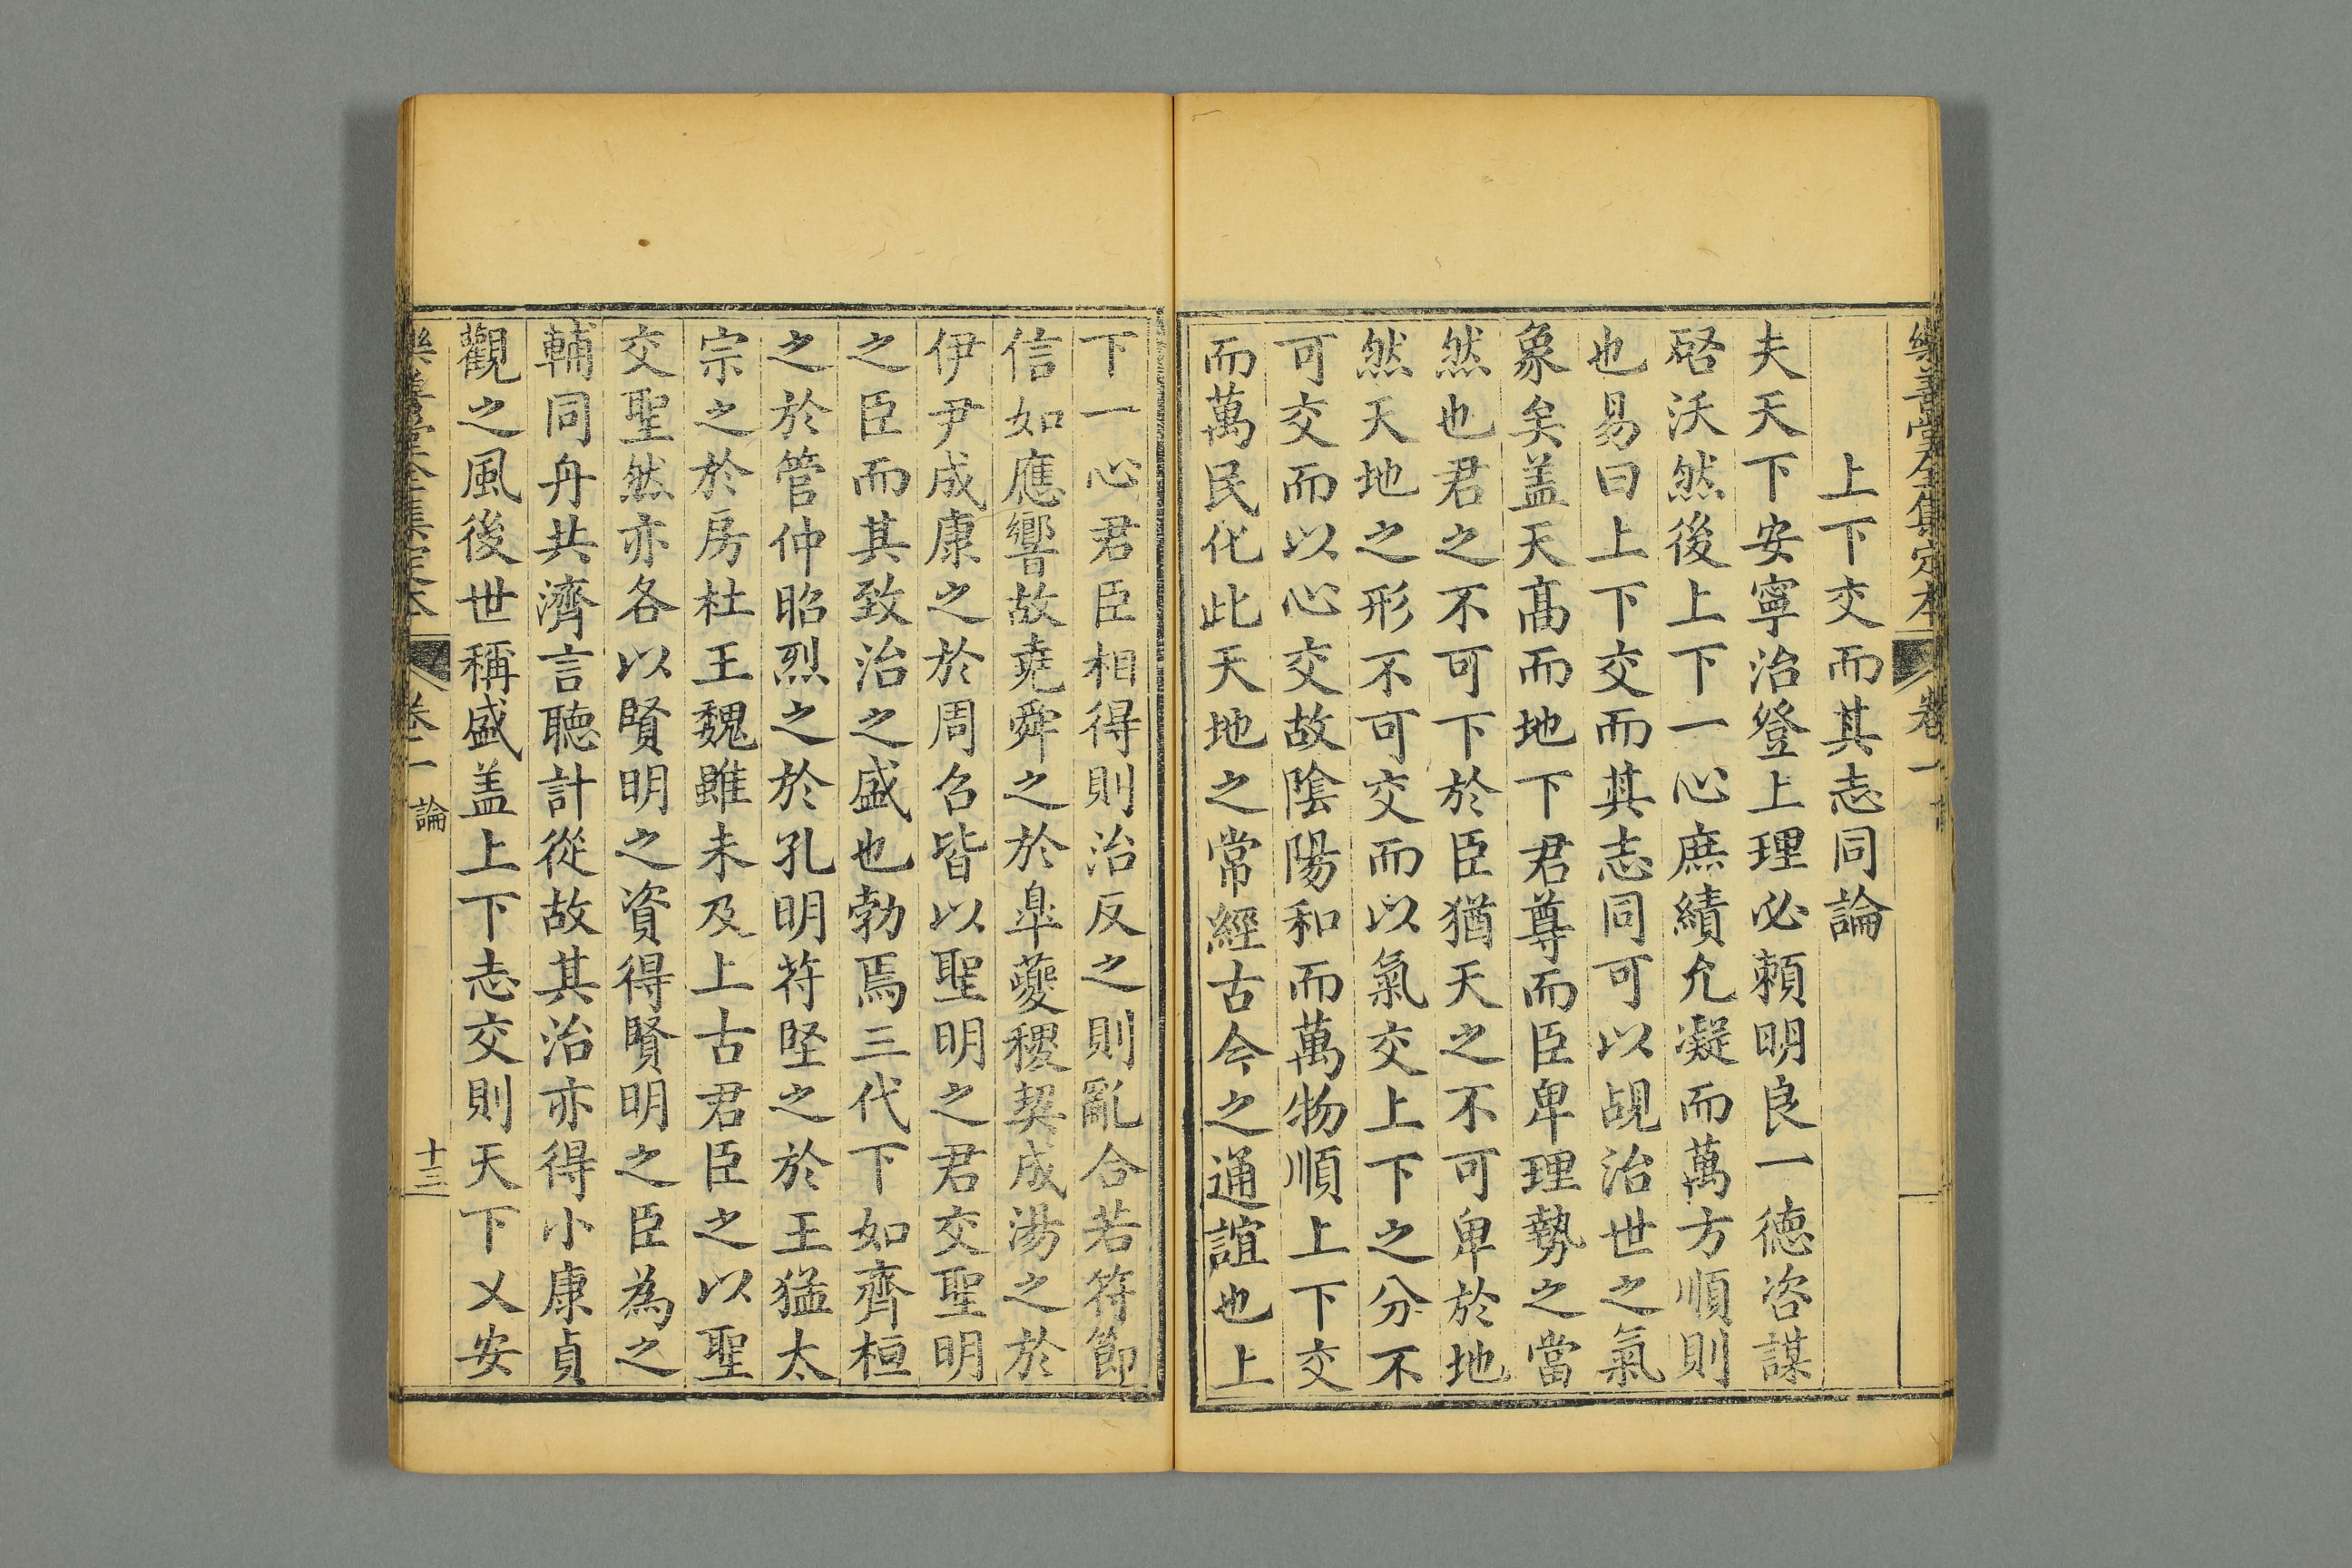 樂善堂全集定本 卷一
上下交而其志同論
夫天下安寧治登上理必賴明良一德咨謀
啓沃然後上下一心庶績允凝而萬方順則
也易曰上下交而其志同可以觇治世之氣
象矣盖天髙而地下君尊而臣卑理勢之當
然也君之不可下於臣猶天之不可卑於地
然天地之形不可交而以氣交上下之分不
可交而以心交故陰陽和而萬物順上下交
而萬民化此天地之常經古今之通誼也上
下一心君臣相得則治反之則亂合若符節
信如應響故堯舜之於臯夔稷契成湯之於
伊尹成康之於周召皆以聖明之君交聖明
之臣而其致治之盛也勃焉三代下如齊桓
之於管仲昭烈之於孔明苻堅之於王猛太
宗之於房杜王魏雖未及上古君臣之以聖
交聖然亦各以賢明之資得賢明之臣為之
輔同舟共濟言聽計從故其治亦得小康貞
觀之風後世稱盛盖上下志交則天下乂安
樂善堂全集定本 卷一 論 十三